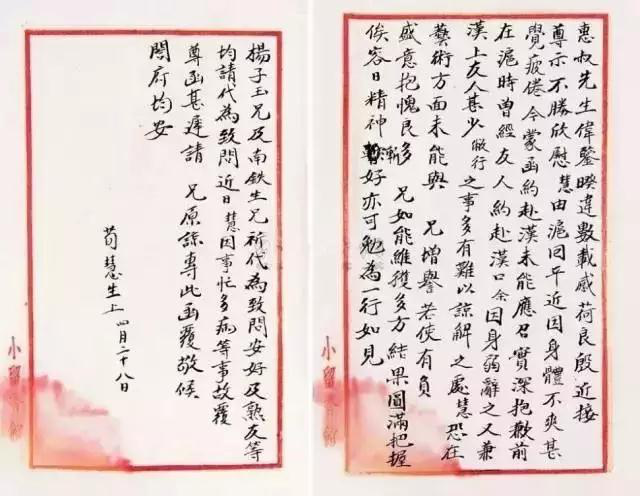 惠叔先生偉鑒暌違數載感荷良殷近接
尊示不勝欣慰慧由滬回平近因身體不爽甚
覺疲倦今蒙函約赴漢未能應召實深抱歉前
在滬時曾經友人約赴漢口余因身弱辭之又兼
漢上友人甚少做行之事多有難以諒解之處慧恐在
藝術方面未能與 兄增譽若使有負
盛意抱愧良多 兄如能維護多方結果圓滿把握
俟容日精神漸好亦可勉為一行如見
小留
楊子玉兄及南鉄生兄祈代為致問安好及熟友等
均請代為致問近日慧因事忙多病等事故覆
尊函甚遲請 兄原諒專此函覆敬候
閤府均安
荀慧生上 四月二十八日
小留